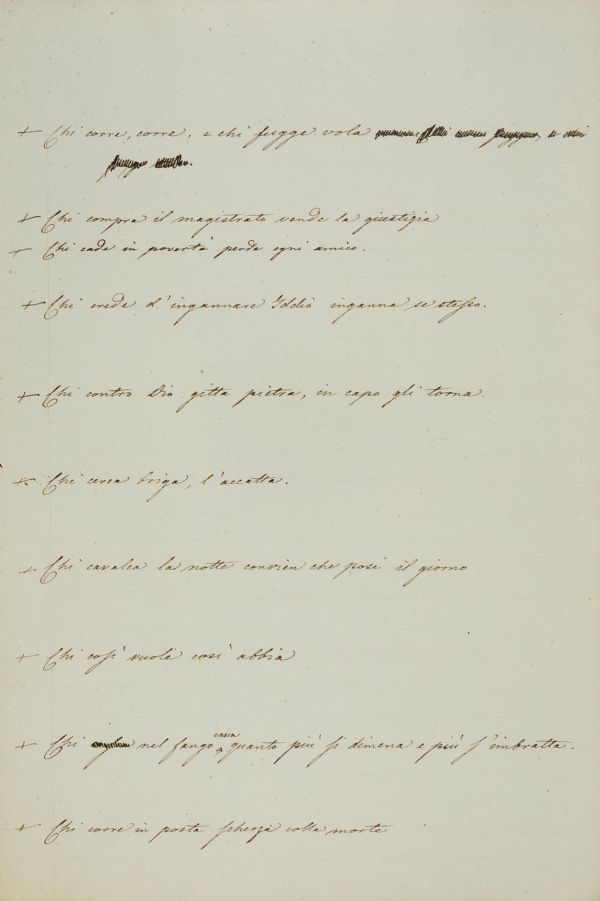 + Chi corre, corre; e chi fugge vola
+ Chi compra il magistrato vende la giustizia
+ Chi cade in povertà perde ogni amico.
+ Chi crede d'ingannare Iddio inganna se stesso.
+ Chi contro Dio gitta pietra, in capo gli torna.
+ Chi cerca briga, l'accatta.
+ Chi cavalca la notte convien che posi il giorno
+ Chi così vuole così abbia
+ Chi nel fango casca quanto più si dimena e più s'imbratta.
+ Chi corre in posta scherza colla morte